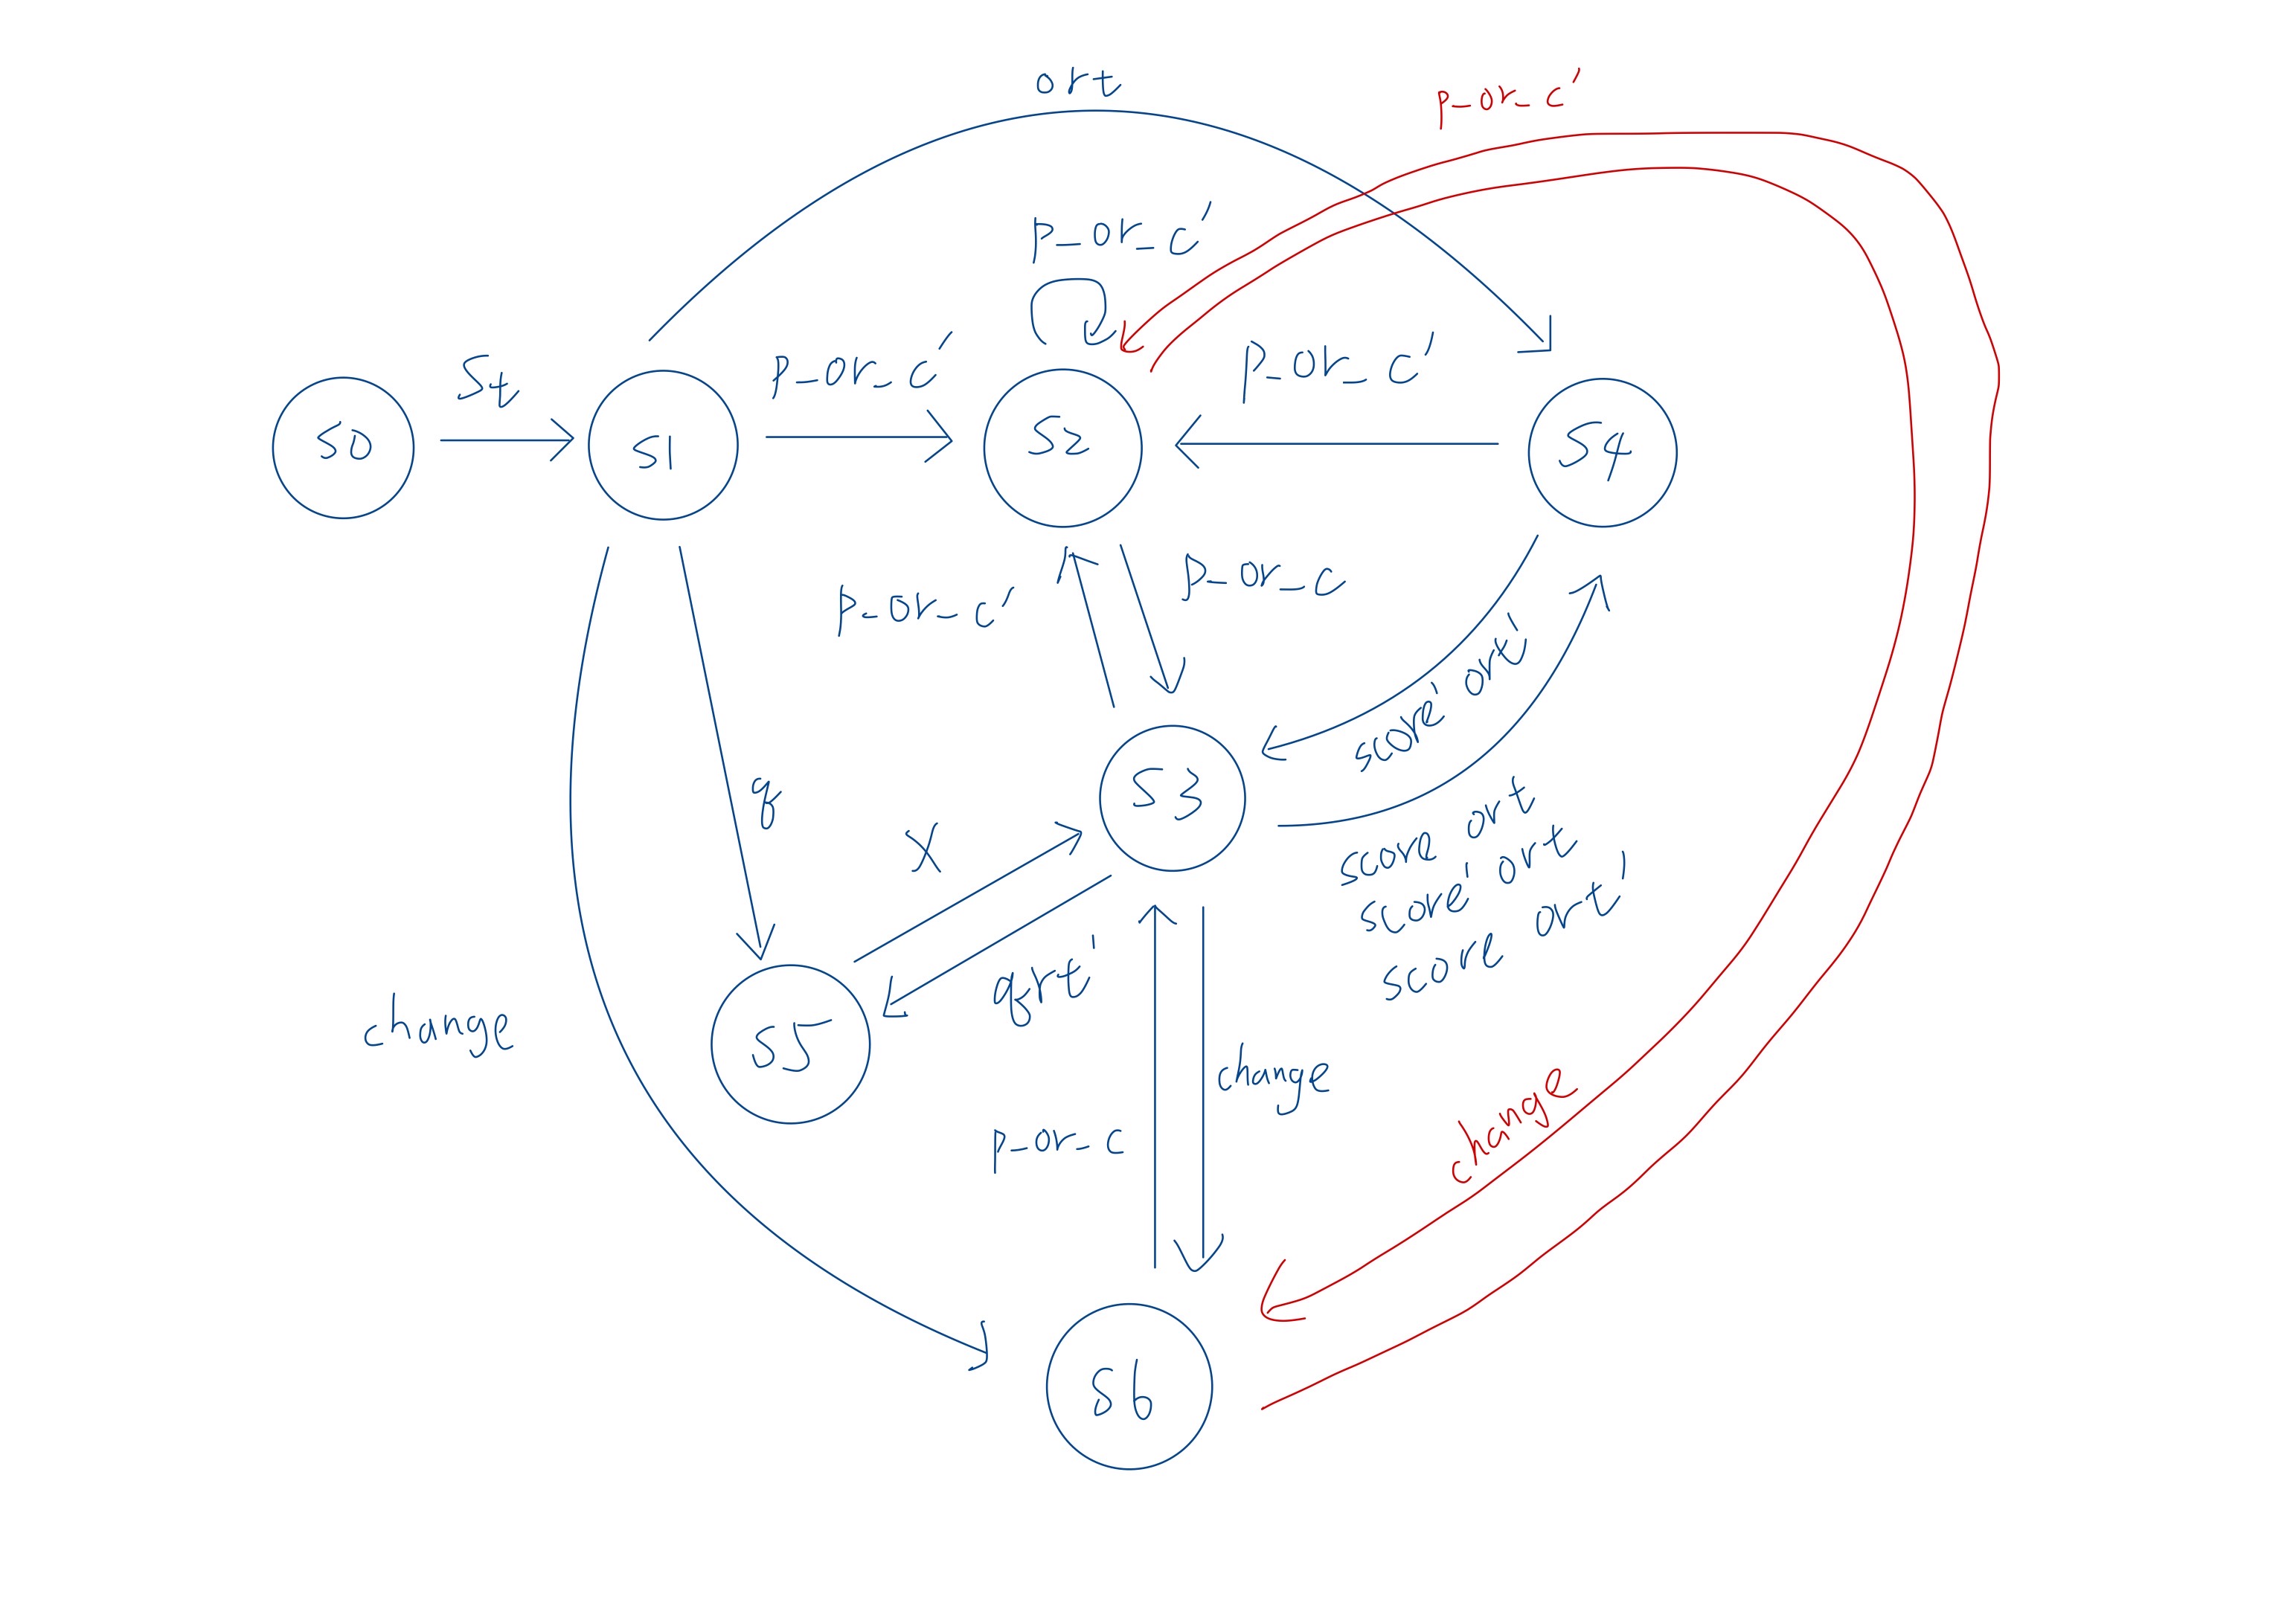 ort
p_or_c'
p_or_c'
St
p_or_c'
p_or_c'
S0
S1
S2
S4
p_or_c'
p_or_c
score' ort'
S3
q
X
score ort
score' ort
score ort'
qrt'
change
S5
change
p_or_c
change
S6